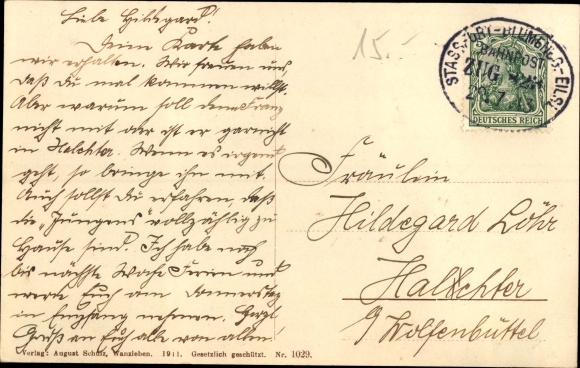 Liebe Hildegard!
Deine Karte haben
wir erhalten. Wir freuen uns,
daß du mal kommen willst.
Aber warum soll denn Franz
nicht mit oder ist er garnicht
in Halchter. Wenn es irgend
geht, so bringe ihn mit.
Auch sollst du erfahren, daß
die „Jungens" vollzählig zu
Hause sind. Ich habe noch
bis nächste Woche Ferien und
werde Euch am Donnerstag
in Empfang nehmen. Herzl.
Gruß an Euch alle von allen!
Verlag: August Schulz, Wanzleben. 1911. Gesetzlich geschützt. Nr. 1029.
15.-
STASSFURT-BLUMENBG-EILSL
BAHNPOST
ZUG
DEUTSCHES REICH
Fräulein
Hildegard Löhr
Halchter
b/ Wolfenbüttel